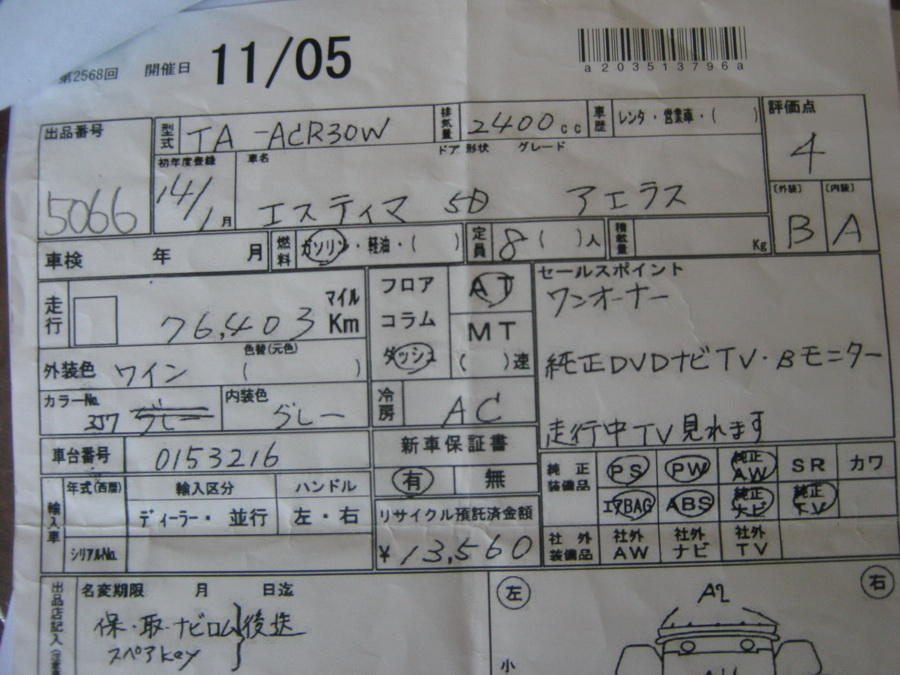 第2568回 開催日 11/05
a203513796a
出品番号 5066
型式 TA-ACR30W 排気量 2400cc 車歴 レンタ・営業車・( )
評価点 4
(外装) B (内装) A
初年度登録 14/1月
車名 ドア 形状 グレード
エスティマ 5D アエラス
車検 年 月 燃料 ガソリン・軽油・( ) 定員 8( )人 積載量 Kg
走行 76,403 マイル Km
フロア コラム ダッシュ
AT MT ( )速
セールスポイント
ワンオーナー
純正DVDナビTV・Bモニター
走行中TV見れます
外装色 ワイン 色替(元色) ( )
カラーNo. グレー 内装色 グレー
冷房 AC
車台番号 0153216
新車保証書 有 無
純正装備品 PS PW 純正AW SR カワ
エアBAG ABS 純正ナビ 純正TV
社外装備品 社外AW 社外ナビ 社外TV
輸入車 年式(西暦) 輸入区分 ハンドル
ディーラー・並行 左・右
シリアルNo.
リサイクル預託済金額
¥13,560
出品店記入
名変期限 月 日迄
保・取・ナビロム 後送
スペアkey
左 右
A2
小